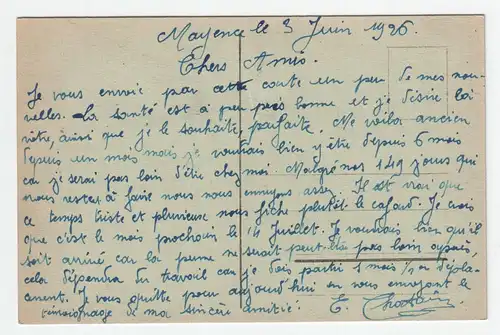 Mayence le 3 Juin 1926
Chers Amis.
Je vous envoie par cette carte un peu de mes nou-
velles. La santé est à peu près bonne et je désire la
vôtre, ainsi que je le souhaite, parfaite. Me voila ancien
depuis un mois mais je voudrais bien y être depuis 6 mois
car je serai pas loin d'être chez moi. Malgré nos 149 jours qui
nous reste, à faire nous nous ennuyons assez. Il est vrai que
ce temps triste et plurieuse nous fiche plutôt le cafard. Je crois
que c'est le mois prochain le 14 Juillet. Je voudrais bien qu'il
soit arrivé car la perme ne serait peut-être pas loin après,
cela dépendra du travail car je dois partir 1 mois 1/2 en dépla-
cement. Je vous quitte pour aujourd'hui en vous envoyant le
témoignage de ma sincère amitié. E.